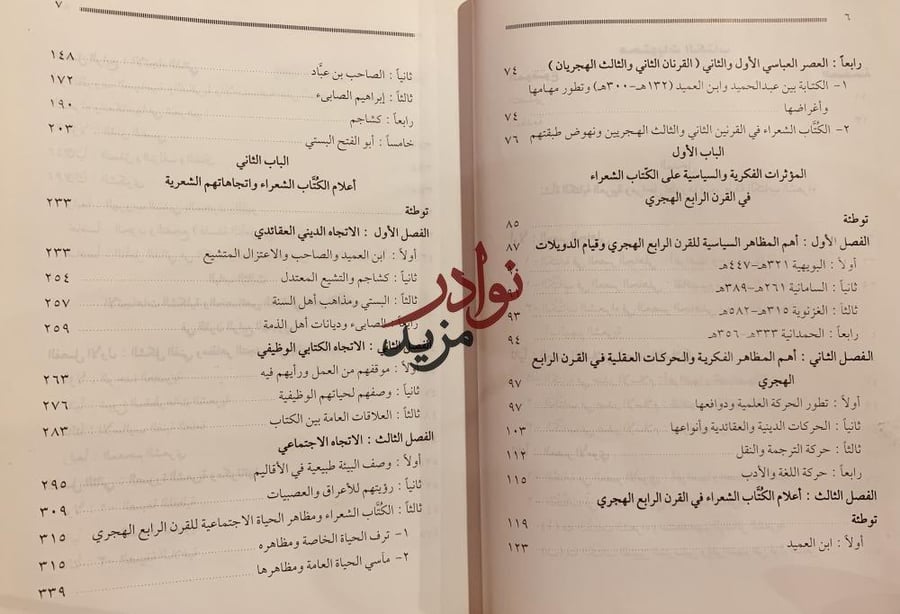 ٦
رابعاً : العصر العباسي الأول والثاني ( القرنان الثاني والثالث الهجريان ) ٧٤
١- الكتابة بين عبدالحميد وابن العميد (١٣٢هـ-٣٠٠هـ) وتطور مهامها
وأغراضها ٧٤
٢- الكُتَّاب الشعراء في القرنين الثاني والثالث الهجريين ونهوض طبقتهم ٧٦
الباب الأول
المؤثرات الفكرية والسياسية على الكُتّاب الشعراء
في القرن الرابع الهجري
توطئة ٨٥
الفصل الأول : أهم المظاهر السياسية للقرن الرابع الهجري وقيام الدويلات ٨٧
أولاً : البويهية ٣٢١هـ-٤٤٧هـ
ثانياً : السامانية ٢٦١هـ-٣٨٩هـ
ثالثاً : الغزنوية ٣١٥هـ-٥٨٢هـ ٩٣
رابعاً : الحمدانية ٣٣٣هـ-٣٥٦هـ ٩٤
الفصل الثاني : أهم المظاهر الفكرية والحركات العقلية في القرن الرابع
الهجري ٩٧
أولاً : تطور الحركة العلمية ودوافعها ٩٧
ثانياً : الحركات الدينية والعقائدية وأنواعها ١٠٣
ثالثاً : حركة الترجمة والنقل ١١٢
رابعاً : حركة اللغة والأدب ١١٥
الفصل الثالث : أعلام الكُتَّاب الشعراء في القرن الرابع الهجري
توطئة ١١٩
أولاً : ابن العميد ١٢٣
٧
ثانياً : الصاحب بن عبَّاد ١٤٨
ثالثاً : إبراهيم الصابىء ١٧٢
رابعاً : كشاجم ١٩٠
خامساً : أبو الفتح البستي ٢٠٣
الباب الثاني
أعلام الكُتَّاب الشعراء واتجاهاتهم الشعرية
توطئة ٢٣٣
الفصل الأول : الاتجاه الديني العقائدي
أولاً : ابن العميد والصاحب والاعتزال المتشيع ٢٣٣
ثانياً : كشاجم والتشيع المعتدل ٢٥٤
ثالثاً : البستي ومذاهب أهل السنة ٢٥٧
رابعاً : الصابىء وديانات أهل الذمة ٢٥٩
الفصل الثاني : الاتجاه الكتابي الوظيفي
أولاً : موقفهم من العمل ورأيهم فيه ٢٦٣
ثانياً : وصفهم لحياتهم الوظيفية ٢٧٦
ثالثاً : العلاقات العامة بين الكتاب ٢٨٣
الفصل الثالث : الاتجاه الاجتماعي
أولاً : وصف البيئة طبيعية في الأقاليم ٢٩٥
ثانياً : رؤيتهم للأعراق والعصبيات ٣٠٩
ثالثاً : الكُتَّاب الشعراء ومظاهر الحياة الاجتماعية للقرن الرابع الهجري ٣١٥
١- ترف الحياة الخاصة ومظاهره ٣١٥
٢- مآسي الحياة العامة ومظاهرها ٣٣٩
نوادر
مزيد